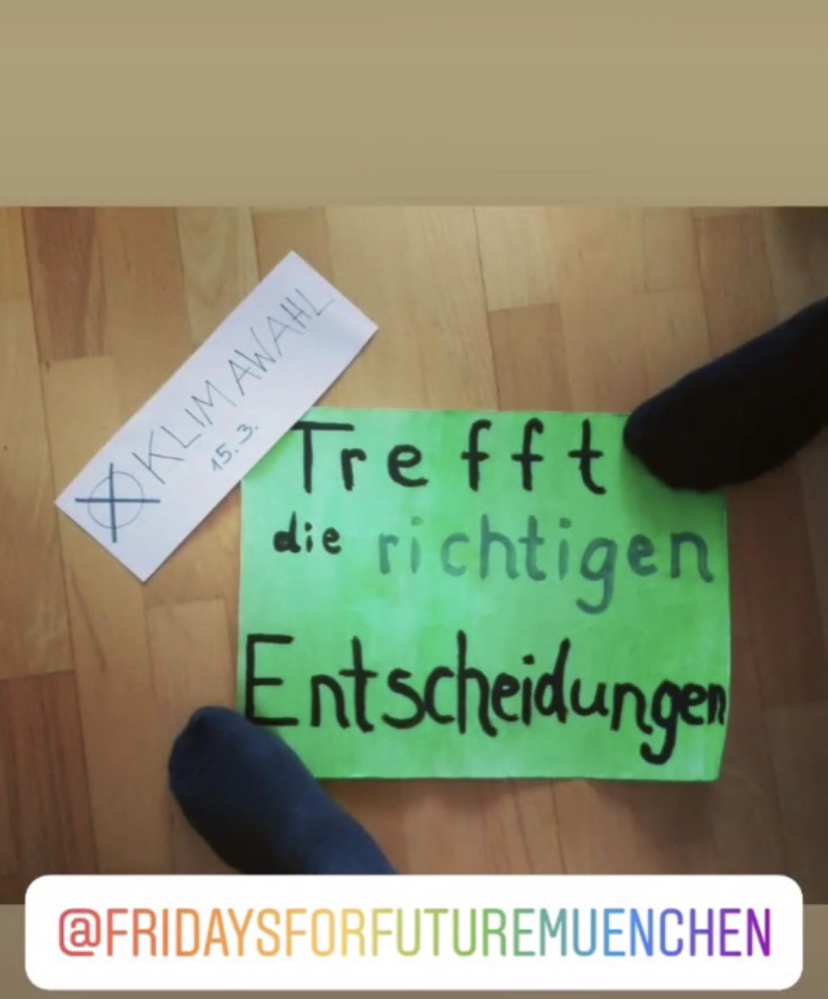 KLIMAWAHL
15.3.
Trefft
die richtigen
Entscheidungen
@FRIDAYSFORFUTUREMUENCHEN